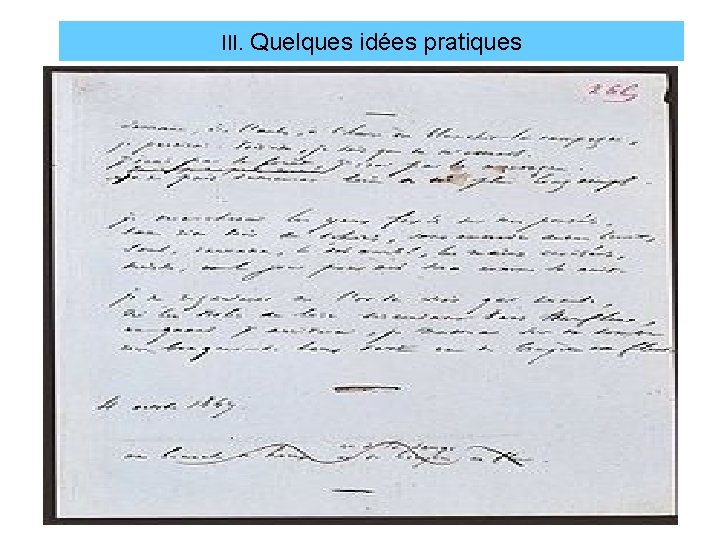 III. Quelques idées pratiques
266
demain, dès l'aube, à l'heure où blanchit la campagne,
je partirai. Vois-tu, je sais que tu m'attends.
j'irai par la forêt, j'irai par la montagne.
je ne puis demeurer loin de toi plus longtemps.
je marcherai les yeux fixés sur mes pensées,
sans rien voir au dehors, sans entendre aucun bruit,
seul, inconnu, le dos courbé, les mains croisées,
triste, et le jour pour moi sera comme la nuit.
je ne regarderai ni l'or du soir qui tombe,
ni les voiles au loin descendant vers Harfleur,
et quand j'arriverai, je mettrai sur ta tombe
un bouquet de houx vert et de bruyère en fleur.
4 octobre 1847.